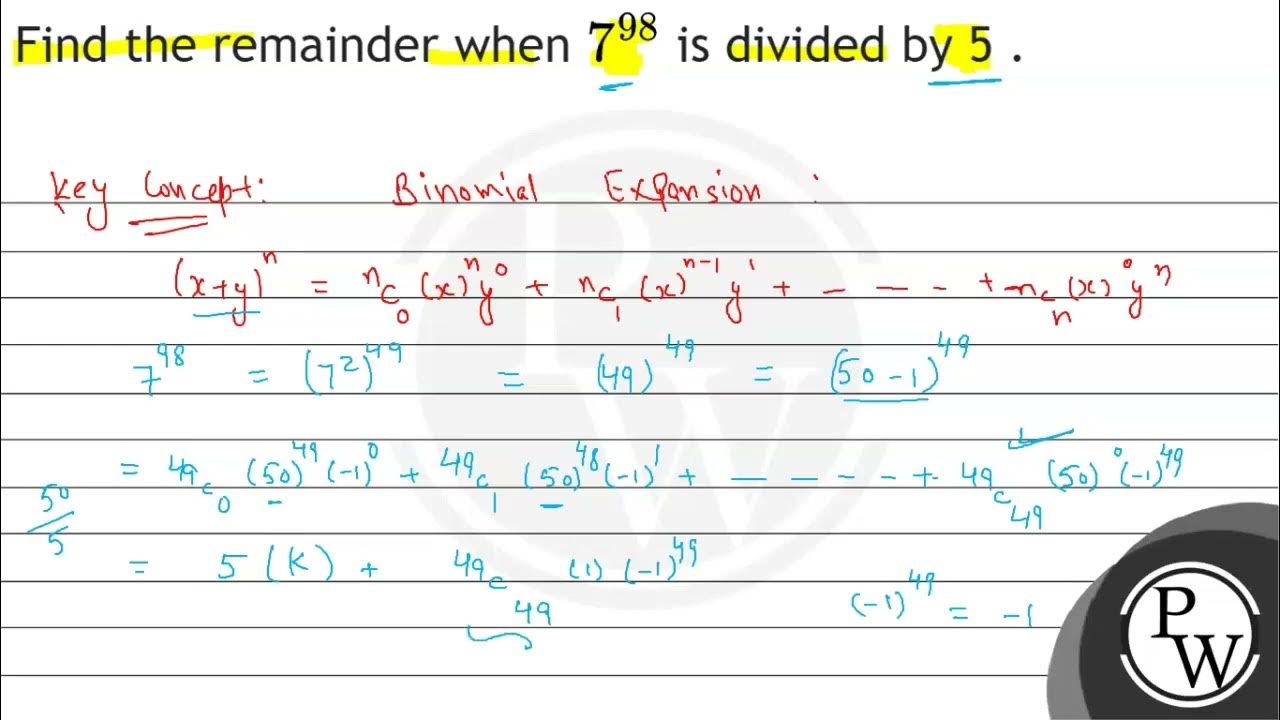 Find the remainder when 7^98 is divided by 5 .
Key Concept: Binomial Expansion :
(x+y)^n = nC0 (x)^n y^0 + nC1 (x)^n-1 y^1 + - - - + nCn (x)^0 y^n
7^98 = (7^2)^49 = (49)^49 = (50-1)^49
= 49C0 (50)^49 (-1)^0 + 49C1 (50)^48 (-1)^1 + - - - - + 49C49 (50)^0 (-1)^49
50/5
= 5 (K) + 49C49 (1) (-1)^49
(-1)^49 = -1
P
W